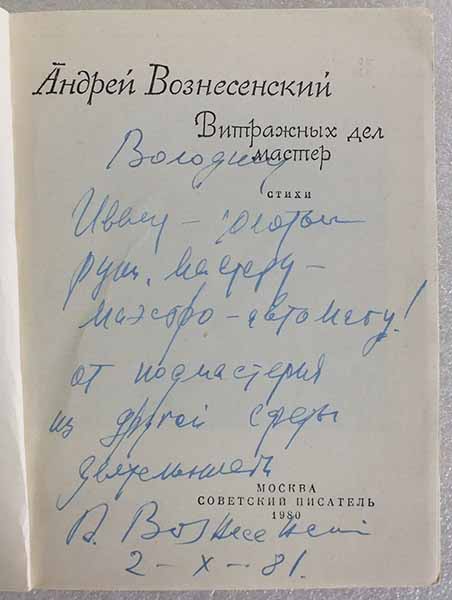 Андрей Вознесенский
Витражных дел
мастер
Володину
СТИХИ
Ивану – золотым
рукам, мастеру –
маэстро – автомату!
от подмастерия
из другой среды
деятельности
МОСКВА
СОВЕТСКИЙ ПИСАТЕЛЬ
1980
А. Вознесенский
2 – X – 81.